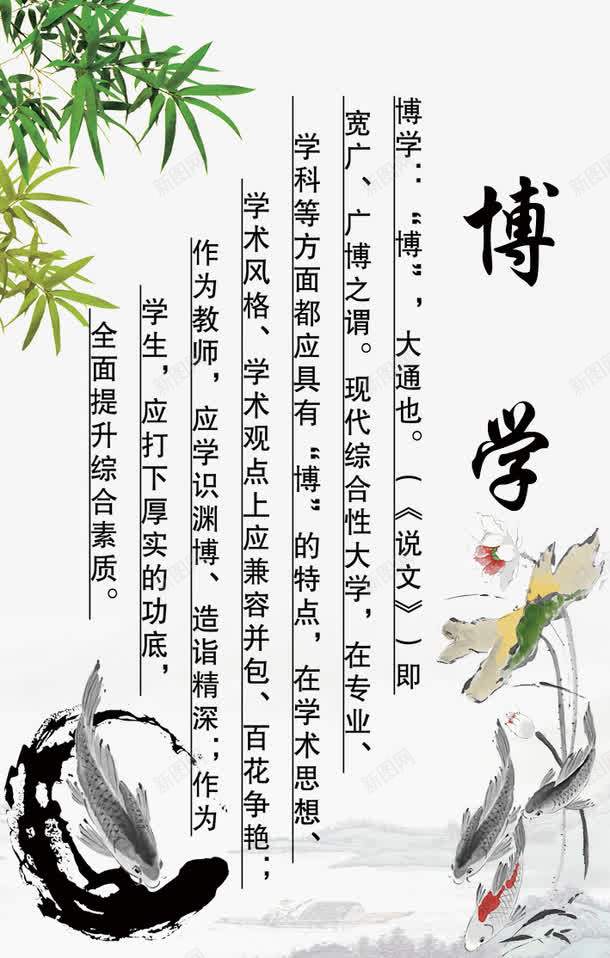 博学
博学：“博”，大通也。（《说文》）即
宽广、广博之谓。现代综合性大学，在专业、
学科等方面都应具有“博”的特点，在学术思想、
学术风格、学术观点上应兼容并包、百花争艳；
作为教师，应学识渊博、造诣精深；作为
学生，应打下厚实的功底，
全面提升综合素质。